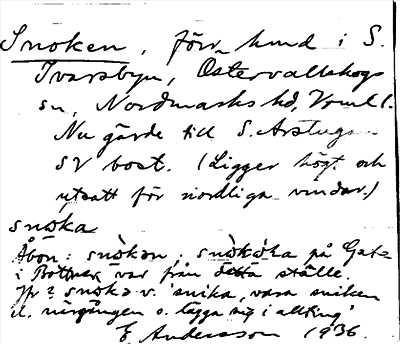 Snoken, förr hmd i S.
Ivarsbyn, Östervallskogs
sn, Nordmarks hd, Vrml.
Nu gärde till S. Arstuga
SV bost. (Ligger högt och
utsatt för nordliga vindar.)
snoka
Åbon: snòkən, snòkəka på Gatz
i Bottnex var från detta ställe.
Jfr? snoka v. 'snika, vara sniken
el. nirgången o. lägga sig i allting'
E. Andersson 1936.